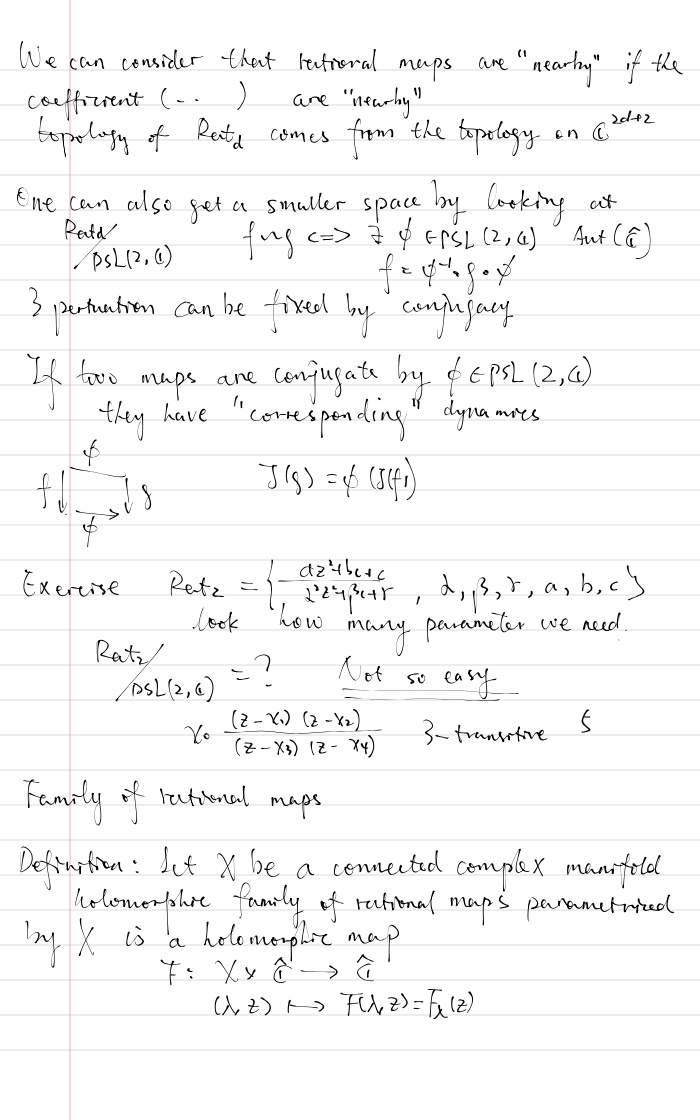 We can consider that rational maps are "nearby" if the
coefficient (-- ) are "nearby"
topology of Rat_d comes from the topology on ℂ^{2d+2}
One can also get a smaller space by looking at
Rat_d/PSL(2,ℂ) f ~ g <=> ∃ φ ∈ PSL(2,ℂ) Aut(Ĉ)
f = φ^{-1} ∘ g ∘ φ
3 pertuation can be fixed by conjugacy
If two maps are conjugate by φ ∈ PSL(2,ℂ)
they have "corresponding" dynamics
φ
f ↓ ↓ g J(g) = φ(J(f))
φ
Exercise Rat_2 = { (az²+bz+c)/(αz²+βz+γ) , α, β, γ, a, b, c }
look how many parameter we need.
Rat_2/PSL(2,ℂ) = ? Not so easy
x_0 (z-x_1)(z-x_2)/(z-x_3)(z-x_4) 3-transitive 5
Family of rational maps
Definition: Let X be a connected complex manifold
holomorphic family of rational maps parametrized
by X is a holomorphic map
F: X × Ĉ → Ĉ
(λ, z) ↦ F(λ, z) = F_λ(z)